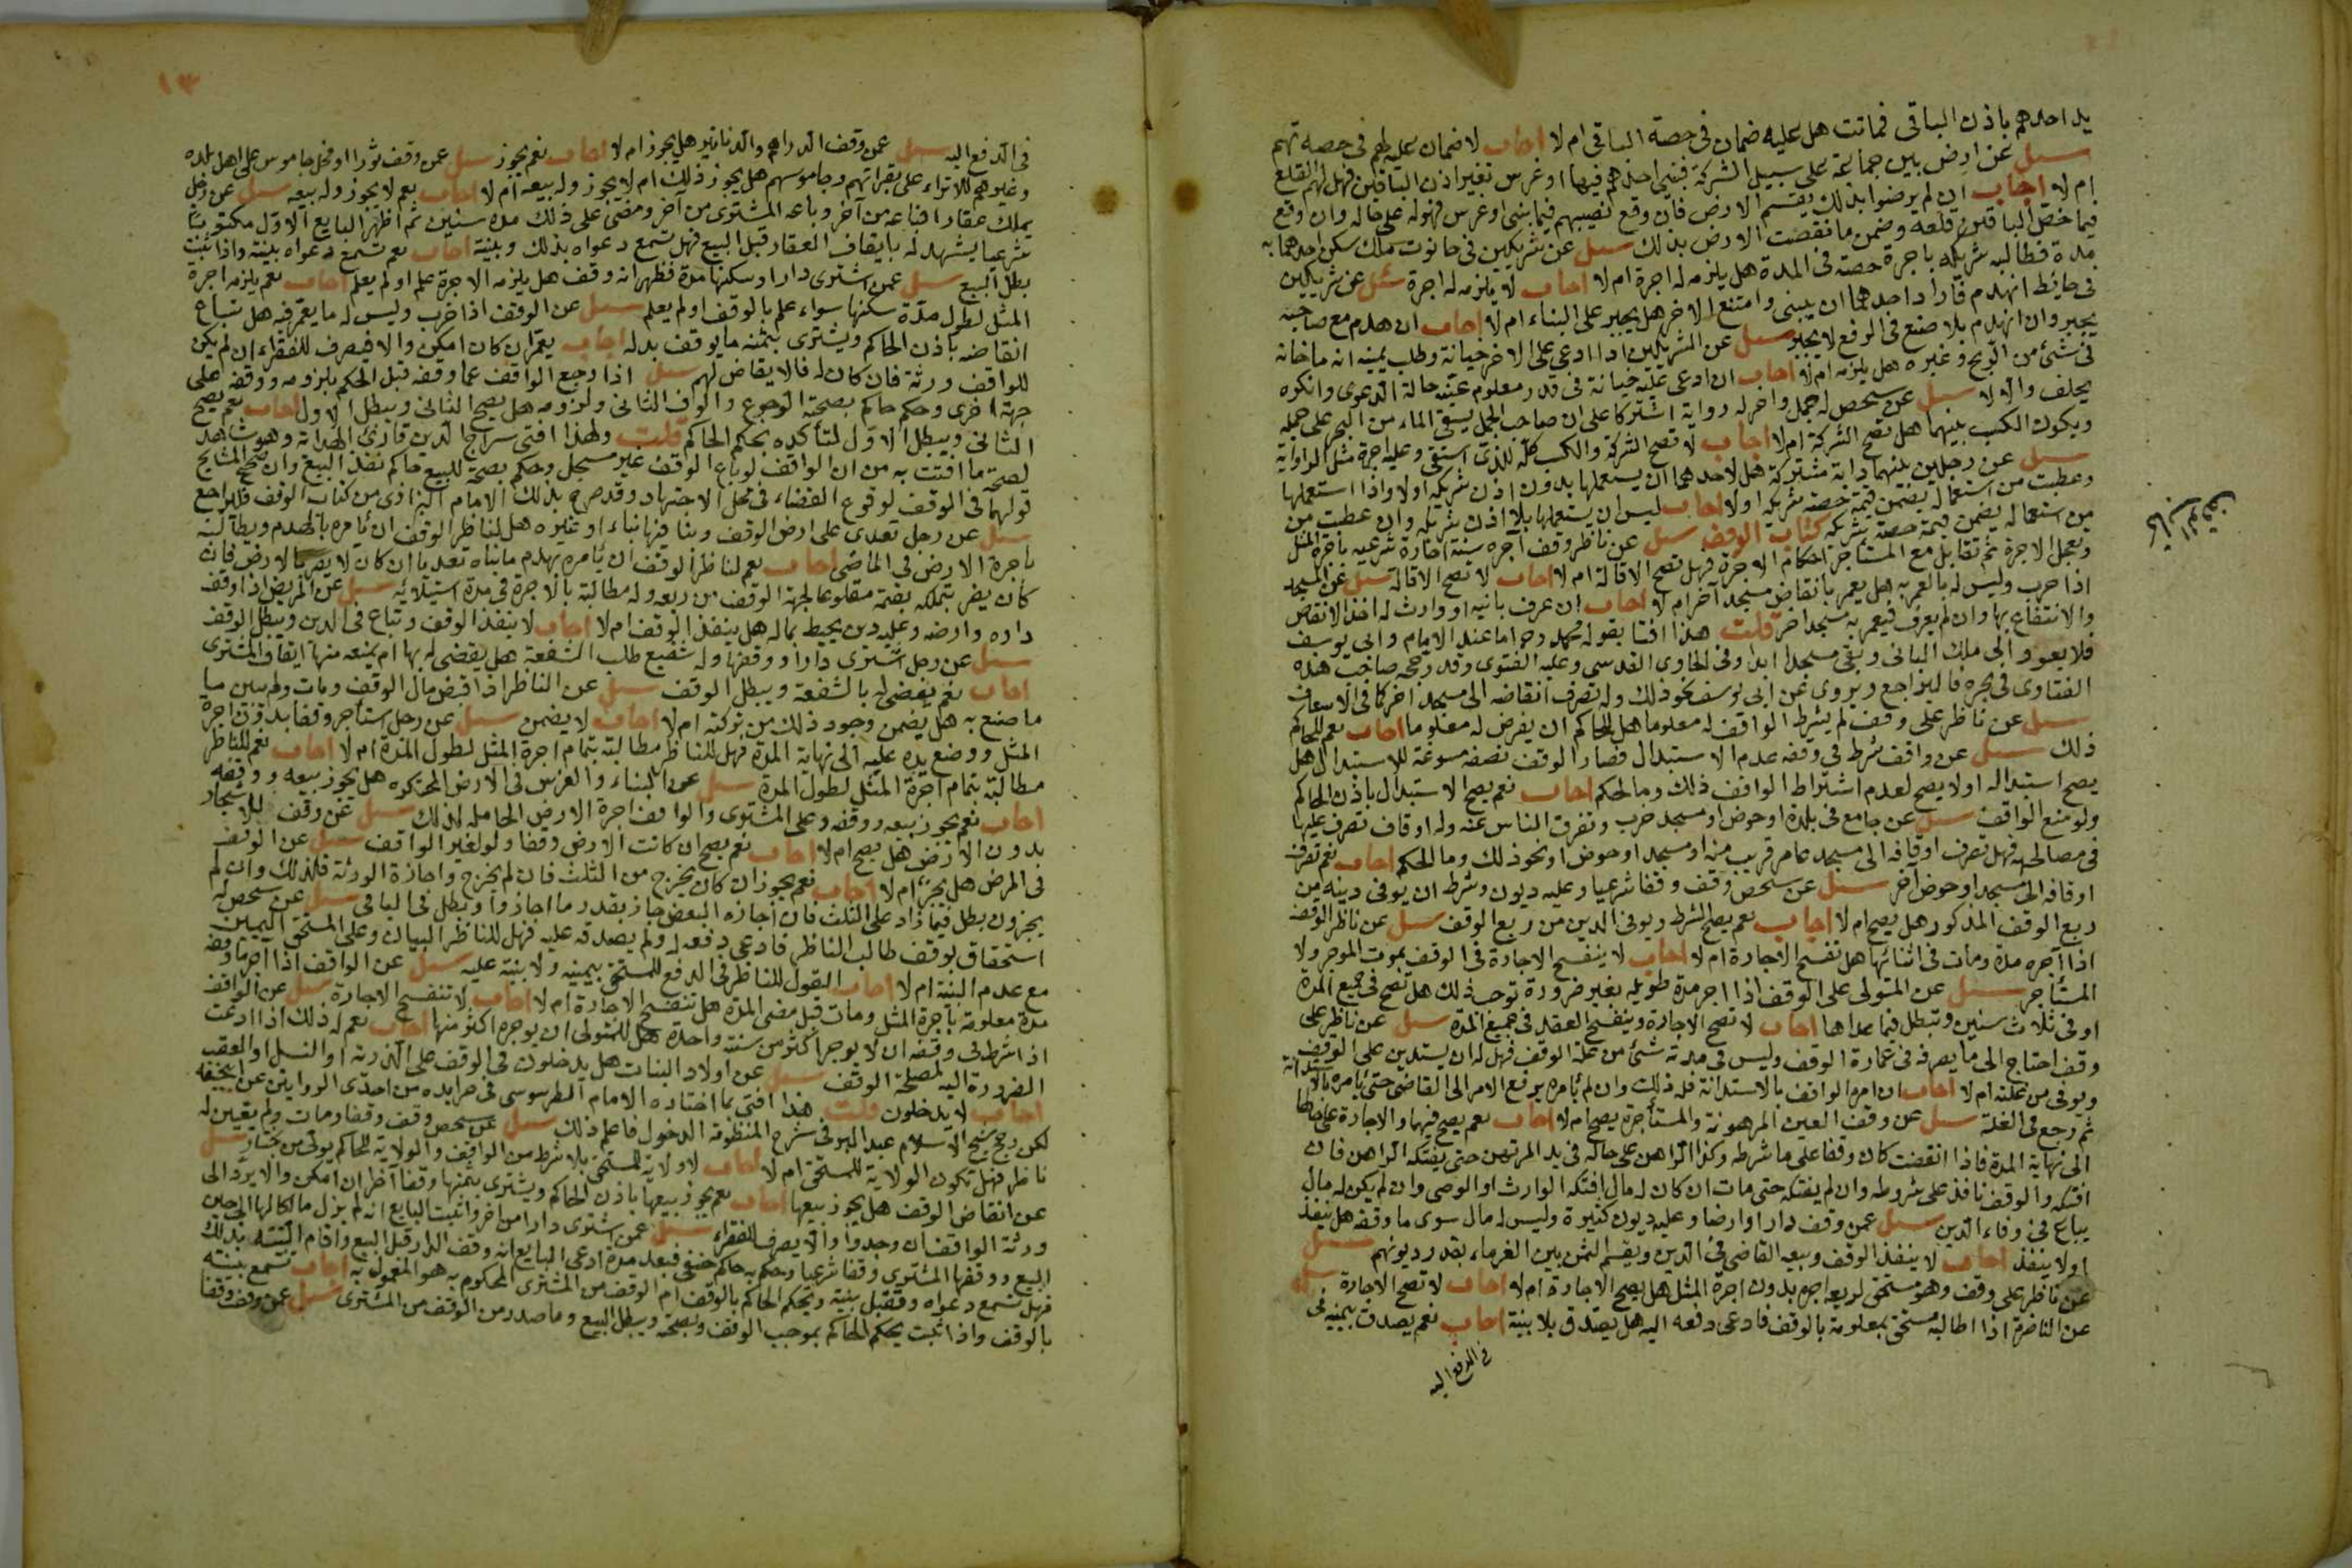 يد احدهم باذن الباقى فماتت هل عليه ضمان فى حصة الباقى ام لا اجاب لا ضمان عليه لهم فى حصصهم
سيل عن ارض بين جماعة على سبيل الشركة فبنى احدهم فيها او غرس بغير اذن الباقين فهل لهم القلع
ام لا اجاب ان لم يرضوا بذلك يقسم الارض فان وقع نصيبهم فيما بنى او غرس فهو له على حاله وان وقع
فيما خص الباقين قلعه وضمن ما نقصت الارض بذلك سيل عن شريكين فى حانوت ملك سكن احدهما به
مدة فطالبه شريكه باجرة حصته فى المدة هل يلزمه له اجرة ام لا اجاب لا يلزمه له اجرة سئل عن شريكين
فى حايط انهدم فاراد احدهما ان يبنى وامتنع الاخر هل يجبر على البناء ام لا اجاب ان هدم مع صاحبه
يجبر وان انهدم بلا صنع فى الوقع لا يجبر سيل عن الشريكين اذا ادعى على الاخر خيانة وطلب يمينه انه ما خانه
فى شئ من الربح وغيره هل يلزمه ام لا اجاب ان ادعى عليه خيانة فى قدر معلوم عينه حالة الدعوى وانكره
يحلف والا لا سيل عن شخص له جمل واخر له رواية اشتركا على ان صاحب الجمل يسقى الماء من البحر على جمله
ويكون الكسب بينهما هل تصح الشركة ام لا اجاب لا تصح الشركة والكسب كله للذى استقى وعليه اجرة مثل الراوية
سيل عن رجلين بينهما دابة مشتركة هل لاحدهما ان يستعملها بدون اذن شريكه اولا واذا استعملها
وعطبت من استعماله يضمن قيمة حصة شريكه اولا اجاب ليس ان يستعملها بلا اذن شريكه وان عطبت من
من استعماله يضمن قيمة حصة شريكه كتاب الوقف سيل عن ناظر وقف آجره سنة اجارة شرعية باجرة المثل
وتعجل الاجرة ثم تقايل مع المستاجر احكام الاجرة فهل تصح الاقالة ام لا اجاب لا تصح الاقالة سيل عن المسجد
اذا خرب وليس له ما يعمر به هل يعمر بانقاض مسجد آخر ام لا اجاب ان عرف بانيه او وارث له اخذ الانقاض
والانتفاع بها وان لم يعرف فيعمر به مسجد اخر قلت هذا افتا بقوله محمد رحمه اما عند الامام وابى يوسف
فلا يعود الى ملك البانى ويبقى مسجدا ابدا وفى الحاوى القدسى وعليه الفتوى وقد رجحه صاحب هذه
الفتاوى فى بحره فاليراجع ويروى عن ابى يوسف نحو ذلك وله تصرف انقاضه الى مسجد اخر كما فى الاسعاف
سيل عن ناظر على وقف لم يشرط الواقف له معلوما هل للحاكم ان يفرض له معلوما اجاب نعم للحاكم
ذلك سيل عن واقف شرط فى وقفه عدم الاستبدال فصار الوقف نصفه مسوغة للاستبدال هل
يصح استبداله اولا يصح لعدم اشتراط الواقف ذلك وما لحكم اجاب نعم يصح الاستبدال باذن الحاكم
ولو منع الواقف سيل عن جامع فى بلدة او حوض او مسجد خرب وتفرق الناس عنه وله اوقاف تصرف عليها
فى مصالحه فهل تصرف اوقافه الى مسجد عامر قريب منه او مسجد او حوض او نحو ذلك وما الحكم اجاب نعم تصرف
اوقافه الى مسجد او حوض آخر سيل عن شخص وقف وقفا شرعيا وعليه ديون وشرط ان يوفى دينه من
ريع الوقف المذكور هل يصح ام لا اجاب نعم يصح الشرط ويوفى الدين من ريع الوقف سيل عن ناظر الوقف
اذا آجره مدة ومات فى اثنائها هل تفسخ الاجارة ام لا اجاب لا ينفسخ الاجارة فى الوقف بموت الموجر ولا
المستاجر سيل عن المتولى على الوقف اذا اجر مدة طويله بغير ضرورة توجب ذلك هل تصح فى جميع المدة
او فى ثلاث سنين وتبطل فيما عداها اجاب لا تصح الاجارة وينفسخ العقد فى جميع المدة سيل عن ناظر على
وقف احتاج الى ما يصرفه فى عمارة الوقف وليس فى مدته شئ من غلة الوقف فهل له ان يستدين على الوقف
ويوفى من غلته ام لا اجاب ان امره الواقف بالاستدانة فله ذلك وان لم يأمره يرفع الامر الى القاضى حتى يأمره بالاستدانة
ثم رجع فى الغلة سيل عن وقف العين المرهونة والمستأجرة يصح ام لا اجاب نعم يصح فيهما والاجارة على حالها
الى نهاية المدة فاذا انقضت كان وقفا على ما شرطه وكذا الراهن على حاله فى يد المرتهن حتى يفتكه الراهن فان
افتكه والوقف نافذ على شروطه وان لم يفتكه حتى مات ان كان له مال افتكه الوارث او الوصى وان لم يكن له مال
يباع فى وفاء الدين سيل عمن وقف دارا وارضا وعليه ديون كثيرة وليس له مال سوى ما وقفه هل ينفذ
اولا ينفذ اجاب لا ينفذ الوقف ويبيعه القاضى فى الدين ويقسم الثمن بين الغرماء بقدر ديونهم سيل
عن ناظر على وقف وهو مستحق لريعه اجره بدون اجرة المثل هل يصح الاجارة ام لا اجاب لا تصح الاجارة سيل
عن الناظر اذا اطالبه مستحق بمعلومه بالوقف فادعى دفعه اليه هل يصدق بلا بينة اجاب نعم يصدق بيمينه فى
فى الدفع اليه
١٣
فى الدفع اليه سيل عمن وقف الدراهم والدنانير هل يجوز ام لا اجاب نعم يجوز سيل عمن وقف ثورا او فحل جاموس على اهل بلده
وغيرهم للانزاء على بقراتهم وجاموسهم هل يجوز ذلك ام لا يجوز وله بيعه ام لا اجاب نعم لا يجوز وله بيعه سيل عن رجل
يملك عقارا فباعه من آخر وباعه المشترى من آخر ومضى على ذلك مدة سنين ثم اظهر البايع الاول مكتوبا
شرعيا يشهد له بايقاف العقار قبل البيع فهل تسمع دعواه بذلك وبينته اجاب نعم تسمع دعواه بينته واذا ثبت
بطل البيع سيل عمن اشترى دارا وسكنها مدة فظهر انه وقف هل يلزمه الاجرة علم او لم يعلم اجاب نعم يلزمه اجرة
المثل لطول مدة سكنها سواء علم بالوقف او لم يعلم سيل عن الوقف اذا خرب وليس له ما يعمر فيه هل تباع
انقاضه باذن الحاكم ويشترى بثمنه ما يوقف بدله اجاب يعمر ان كان امكن والا فيصرف للفقراء ان لم يكن
للواقف ورثة فان كان له فالانقاض لهم سيل اذا رجع الواقف عما وقفه قبل الحكم بلزومه ووقفه على
جهة اخرى وحكم حاكم بصحة الرجوع والوقف الثانى ولزومه هل يصح الثانى ويبطل الاول اجاب نعم يصح
الثانى ويبطل الاول لتأكده بحكم الحاكم قلت ولهذا افتى سراج الدين قارئ الهداية وهو شاهد
لصحة ما افتت به من ان الواقف لو باع الوقف غير مسجل وحكم بصحة للبيع حاكم نفذ البيع وان صحح المشايخ
قولهما فى الوقف لوقوع القضاء فى محل الاجتهاد وقد صرح بذلك الامام البزازى من كتاب الوقف فليراجع
سيل عن رجل تعدى على ارض الوقف وبنا فيها بناء او غيره هل لناظر الوقف ان يأمره بالهدم ويطالبه
باجرة الارض فى الماضى اجاب نعم لناظر الوقف ان يأمره بهدم ما بناه تعديا ان كان لا يضر بالارض فان
كان يضر يتملكه بقيمته مقلوعا لجهة الوقف من ريعه وله مطالبة بالاجرة فى مدة استيلائه سيل عن المريض اذا وقف
داره وارضه وعليه دين يحيط بماله هل ينفذ الوقف ام لا اجاب لا ينفذ الوقف وتباع فى الدين ويبطل الوقف
سيل عن رجل اشترى دارا ووقفها وله شفيع طلب الشفعة هل يقضى له بها ام يمنعه منها ايقاف المشترى
اجاب نعم يقضى له بالشفعة ويبطل الوقف سيل عن الناظر اذا قبض مال الوقف ومات ولم يبين ما
ما صنع به هل يضمن وجود ذلك من تركته ام لا اجاب لا يضمن سيل عن رجل استأجر وقفا بدون اجرة
المثل ووضع يده عليه الى نهاية المدة فهل للناظر مطالبة بتمام اجرة المثل لطول المدة ام لا اجاب نعم للناظر
مطالبة بتمام اجرة المثل لطول المدة سيل عن البناء والغرس فى الارض المحتكره هل يجوز بيعه ووقفه
اجاب نعم يجوز بيعه ووقفه وعلى المشترى والواقف اجرة الارض الحامله لذلك سيل عن وقف الاشجار
بدون الارض هل يصح ام لا اجاب نعم يصح ان كانت الارض وقفا ولو لغير الواقف سيل عن الوقف
فى المرض هل يجوز ام لا اجاب نعم يجوز ان كان يخرج من الثلث فان لم يخرج واجازة الورثة فكذلك وان لم
يجيزوه يبطل فيما زاد على الثلث فان اجازه البعض جاز بقدر ما اجازوا ويبطل فى الباقى سيل عن شخص له
استحقاق بوقف طالب الناظر فادعى دفعه له ولم يصدقه عليه فهل للناظر البيان وعلى المستحق اليمين
مع عدم البينة ام لا اجاب القول للناظر فى الدفع للمستحق بيمينه ولا بينة عليه سيل عن الواقف اذا آجر ما وقفه
مدة معلومة باجرة المثل ومات قبل مضى المدة هل تنفسخ الاجارة ام لا اجاب لا تنفسخ الاجارة سيل عن الواقف
اذا شرط فى وقفه ان لا يوجر اكثر من سنة واحدة هل للمتولى ان يوجره اكثر منها اجاب نعم له ذلك اذا دعت
الضرورة اليه لمصلحة الوقف سيل عن اولاد البنات هل يدخلون فى الوقف على الذرية او النسل او العقب
اجاب لا يدخلون قلت هذا افتى بما اختاره الامام الطرسوسى من احدى الروايتين عن
لكن رجح شيخ الاسلام عبد البر فى شرح المنظومة الدخول فاعلم ذلك سيل عن شخص وقف وقفا ومات ولم يعين له
ناظر فهل تكون الولاية للمستحق ام لا اجاب لا ولاية للمستحق بلا شرط من الواقف والولاية للحاكم يولى من يختار سيل
عن انقاض الوقف هل يجوز بيعها اجاب نعم يجوز بيعها باذن الحاكم ويشترى بثمنها وقفا آخر ان امكن والا يرد الى
ورثة الواقف ان وجدوا والا يصرف للفقراء سيل عمن اشترى دارا من آخر واثبت البايع انه لم يزل مالكا لها الى حين
البيع ووقفها المشترى وقفا شرعيا وحكم به حاكم حنفى فبعد مدة ادعى البايع انه وقف الدار قبل البيع واقام البينة بذلك
فهل تسمع دعواه وتقبل بينته ويحكم الحاكم بالوقف ام الوقف من المشترى المحكوم به هو المعمول به اجاب تسمع بينته
بالوقف واذا اثبت يحكم الحاكم بموجب الوقف وبصحته ويبطل البيع وما صدر من الوقف من المشترى سيل عمن وقف وقفا